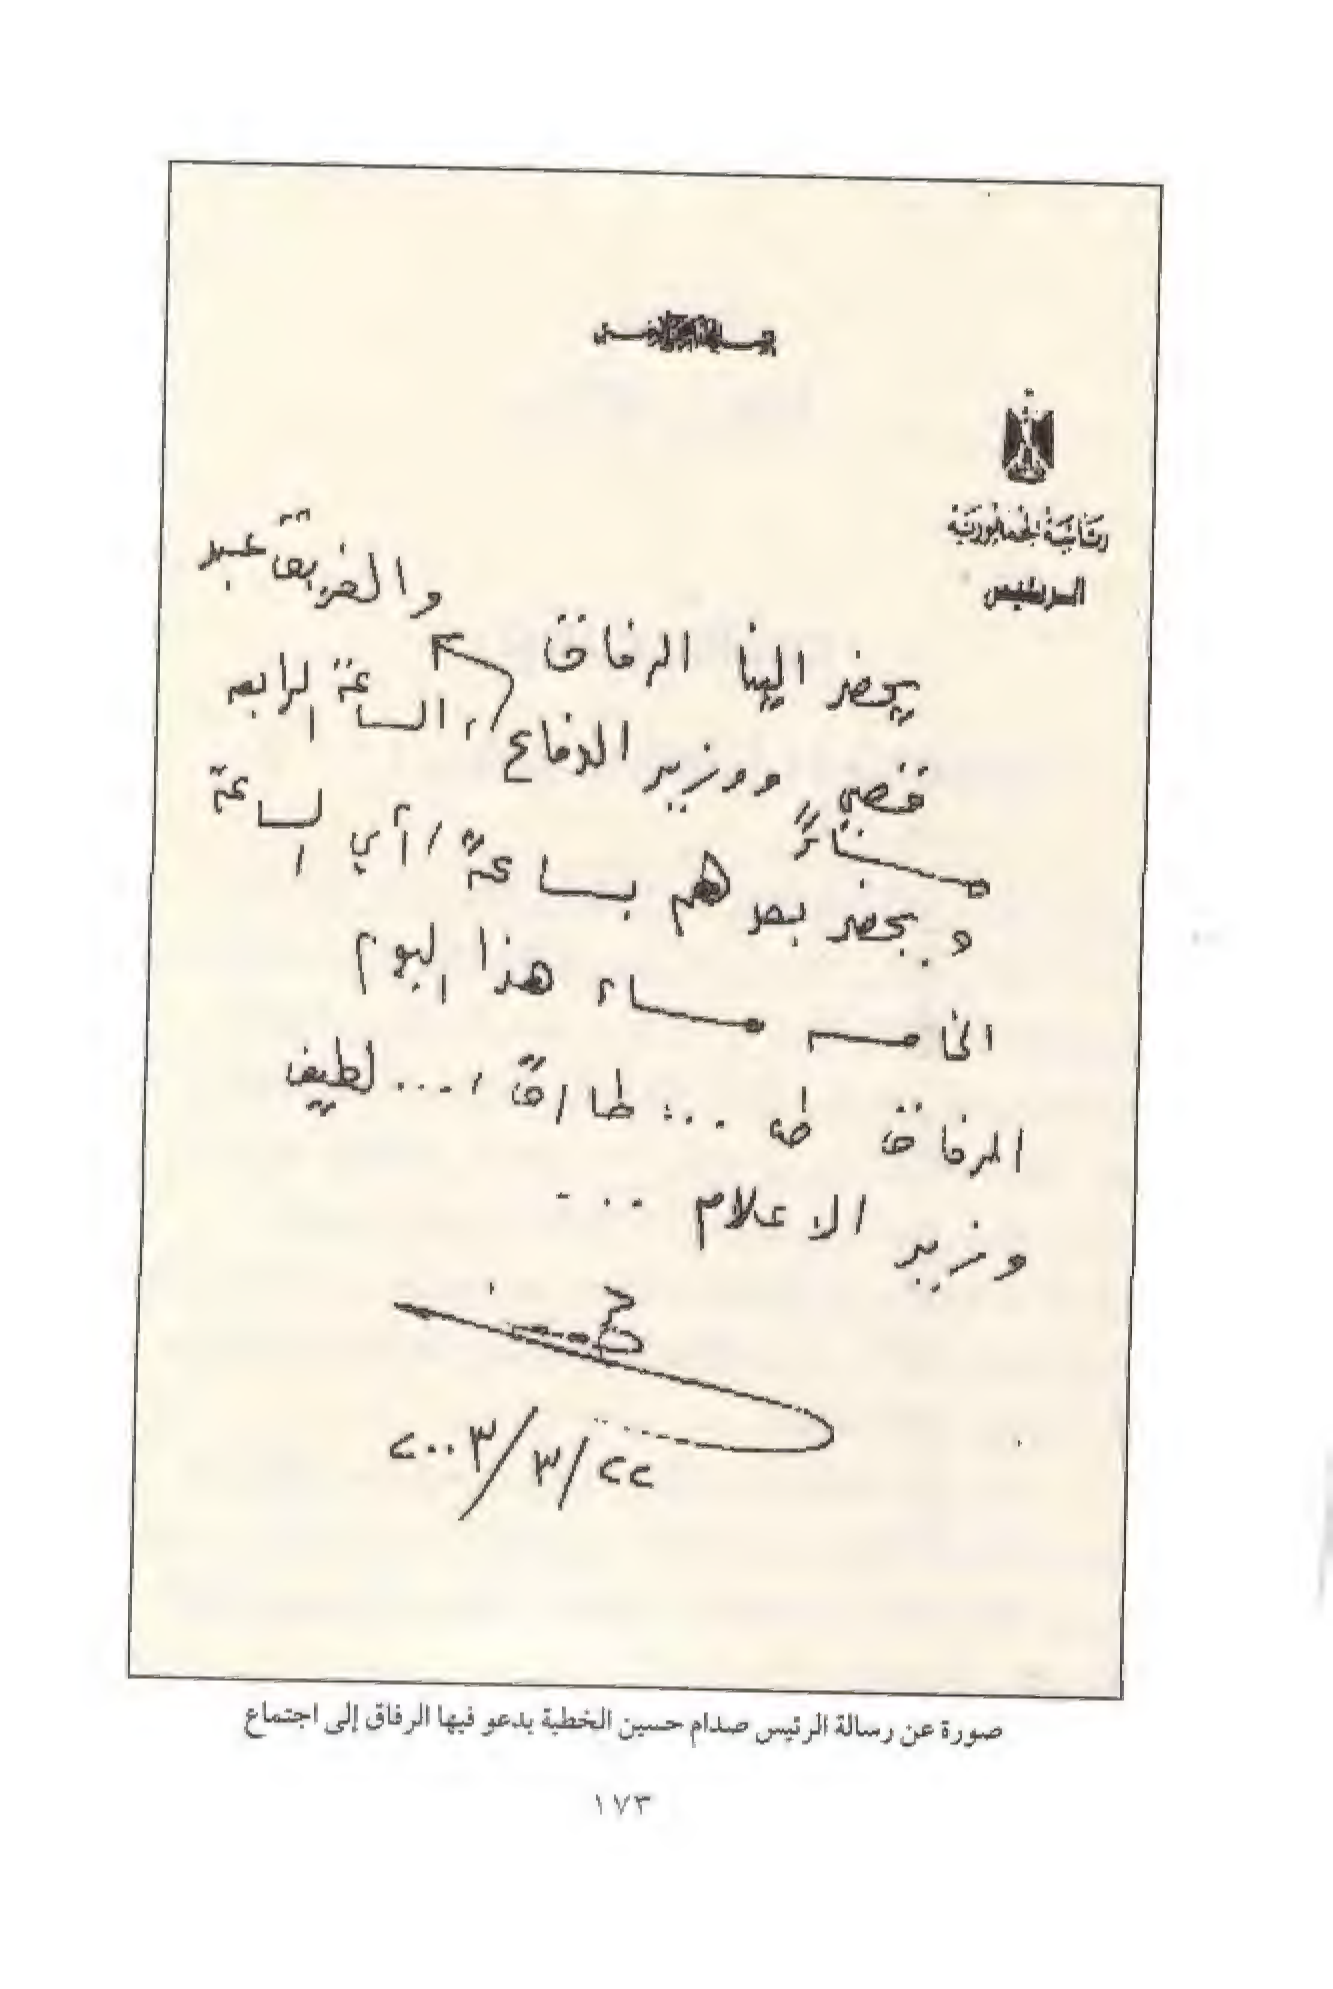 بسم الله الرحمن الرحيم
رئاسة الجمهورية
الرئيس
والفريق عبد
يحضر الينا الرفاق
قصي ووزير الدفاع، الساعة الرابعة
مساءً
ويحضر بعدهم بساعة / أي الساعة
الخامسة مساء هذا اليوم
الرفاق طه ... طارق، ... لطيف
وزير الاعلام ...
٢٠٠٣/٣/٢٢
صورة عن رسالة الرئيس صدام حسين الخطية يدعو فيها الرفاق إلى اجتماع
١٧٣